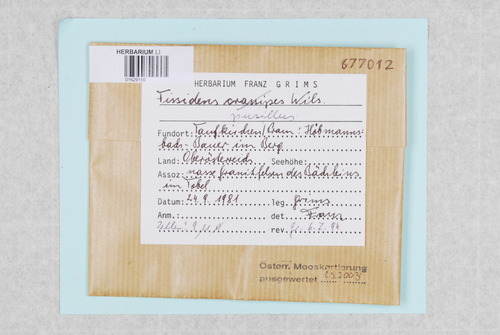 677012
HERBARIUM LI
HERBARIUM FRANZ GRIMS
Fissidens crassipes Wils.
pusillus
Fundort: Taufkirchen/Pram: Höbmanns-
bach; Bauer im Berg
Land: Oberösterreich Seehöhe:
Assoz: nasse Granitfelsen des Bächleins
im Tobel
Datum: 24.9.1981 leg. Grims
Anm. det.
rev. 6.7.94
Österr. Mooskartierung
ausgewertet